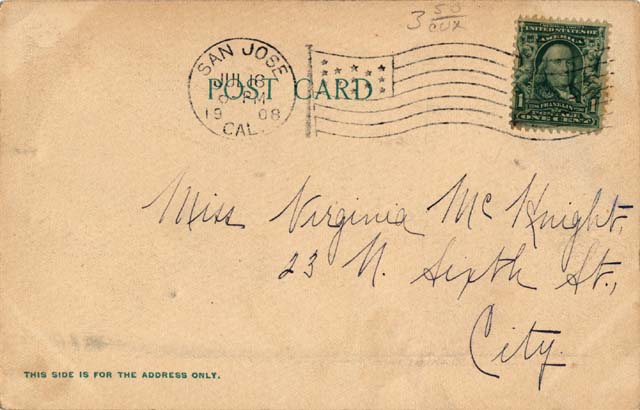 3 50
CUX
UNITED STATES OF AMERICA
SAN JOSE
JUL 18
PM
19 08
CAL.
POST CARD
1 FRANKLIN 1
POSTAGE
ONE CENT
Miss Virginia Mc Knight,
23 N. Sixth St.,
City.
THIS SIDE IS FOR THE ADDRESS ONLY.